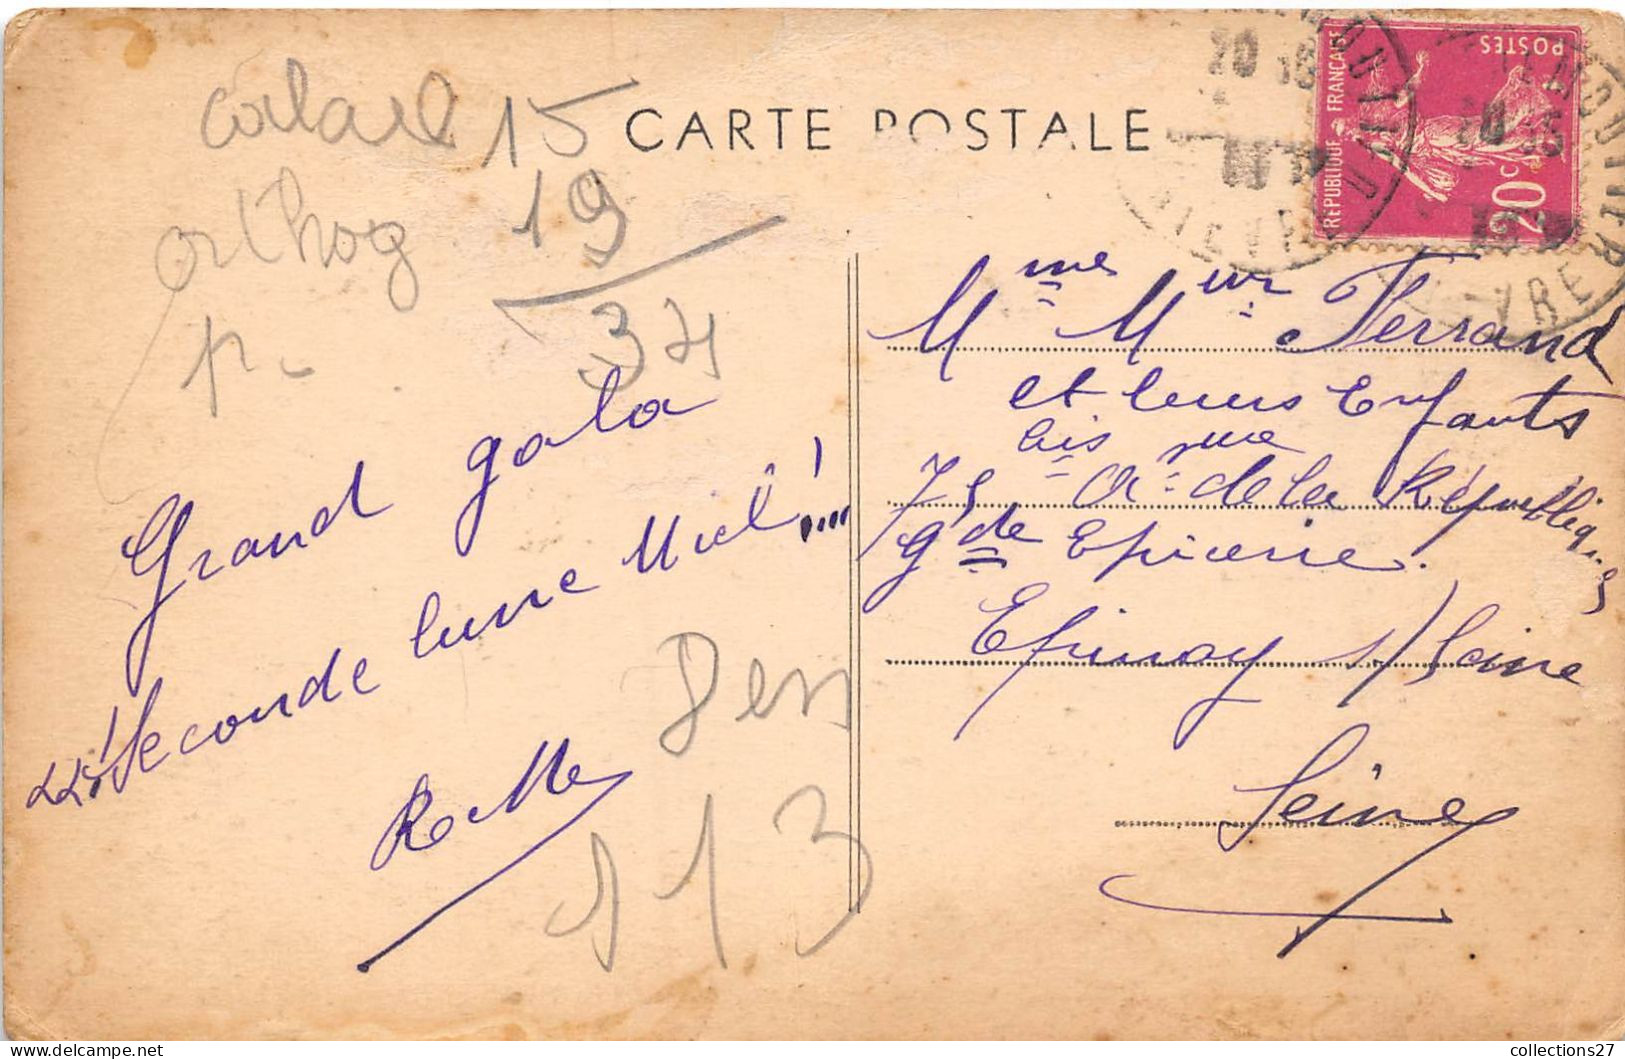 CARTE POSTALE
15
19
34
orthog
Grand gala
Seconde lune Miel !....
113
Mme Mur Ferrand
et leurs Enfants
75 bis rue de la République
gde Epicerie.
Epinay s/ Seine
Seine
REPUBLIQUE FRANCAISE
POSTES
20c
collections27